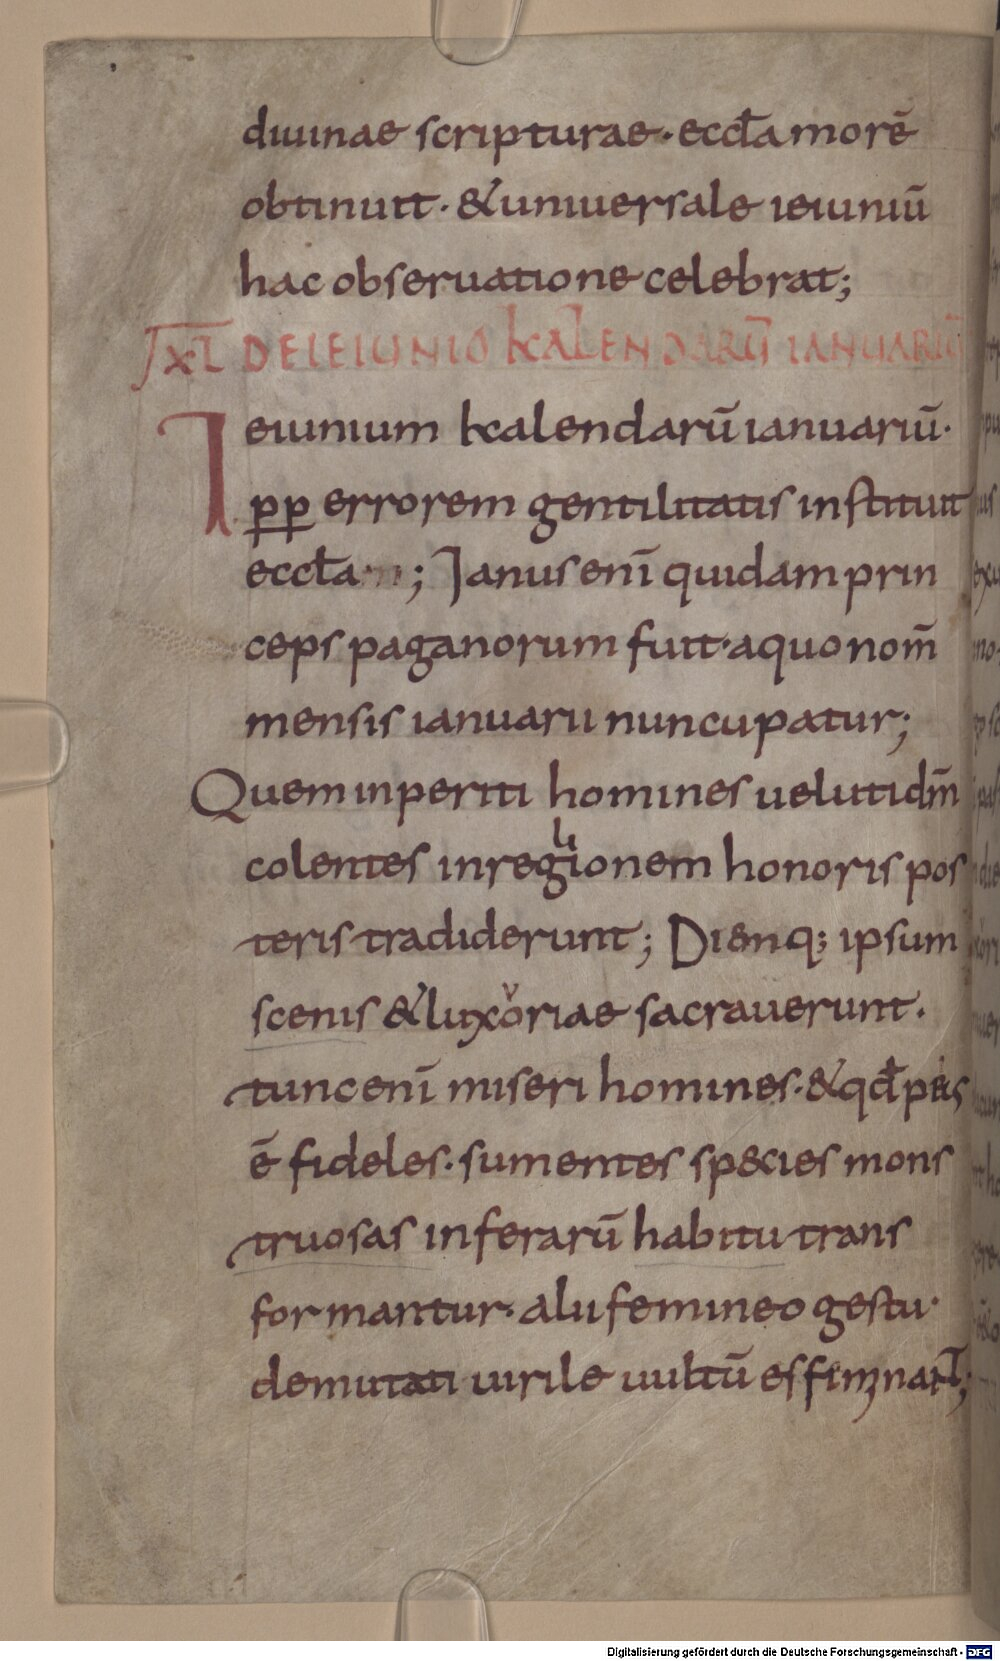 diuinae scripturae· eccła morē
obtinuit· & uniuersale ieiuniū
hac obseruatione celebrat;
XL DE IEIUNIO KALENDARŪ IANUARIŪ
Ieiunium kalendarū ianuariū·
pp errorem gentilitatis instituit
eccła; Ianus enī quidam prin
ceps paganorum fuit· a quo nom̄
mensis ianuarii nuncupatur;
Quem inperiti homines uelut idm̄
colentes in religionem honoris pos
teris tradiderunt; Diēnq; ipsum
scenis & luxoriae sacrauerunt·
tunc enī miseri homines· & qđ peius
ē fideles· sumentes species mons
truosas in ferarū habitu trans
formantur· alii femineo gestu·
demutati uirile uultū effeminant;
Digitalisierung gefördert durch die Deutsche Forschungsgemeinschaft - DFG